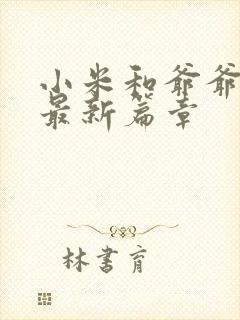 小米和爷爷
最新篇章
林书育